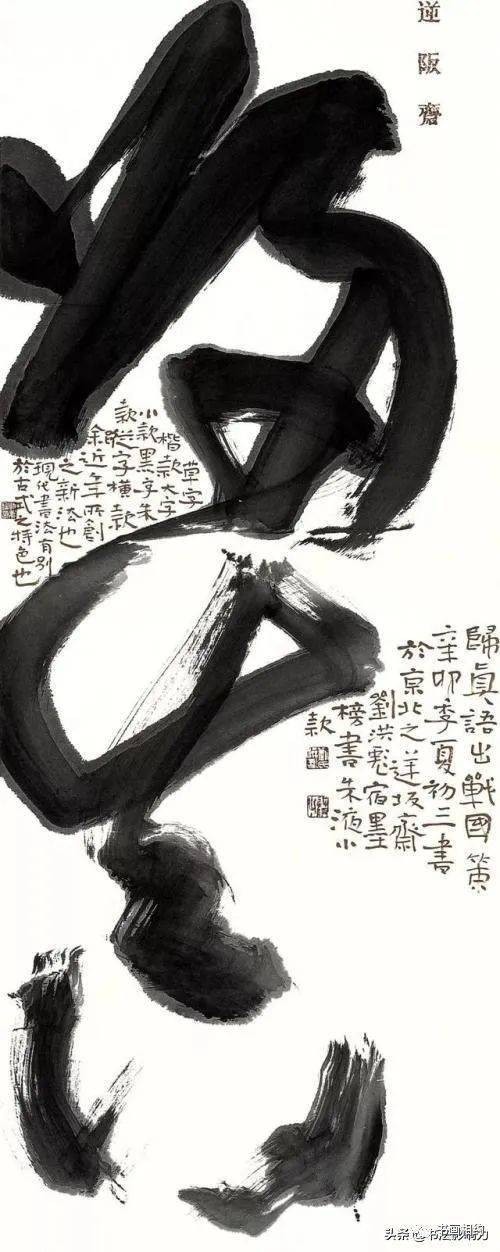 逆阪齋
歸真
歸眞語出戰國策
辛卯季夏初三書
於京北之逆坂齋
劉洪彪宿墨
榜書朱液小
款
草字
楷款大字
小款黑字朱
款縱字橫款
余近年所創
之新法也
現代書法有別
於古式之特色也
书画相约
头条@书法影响力